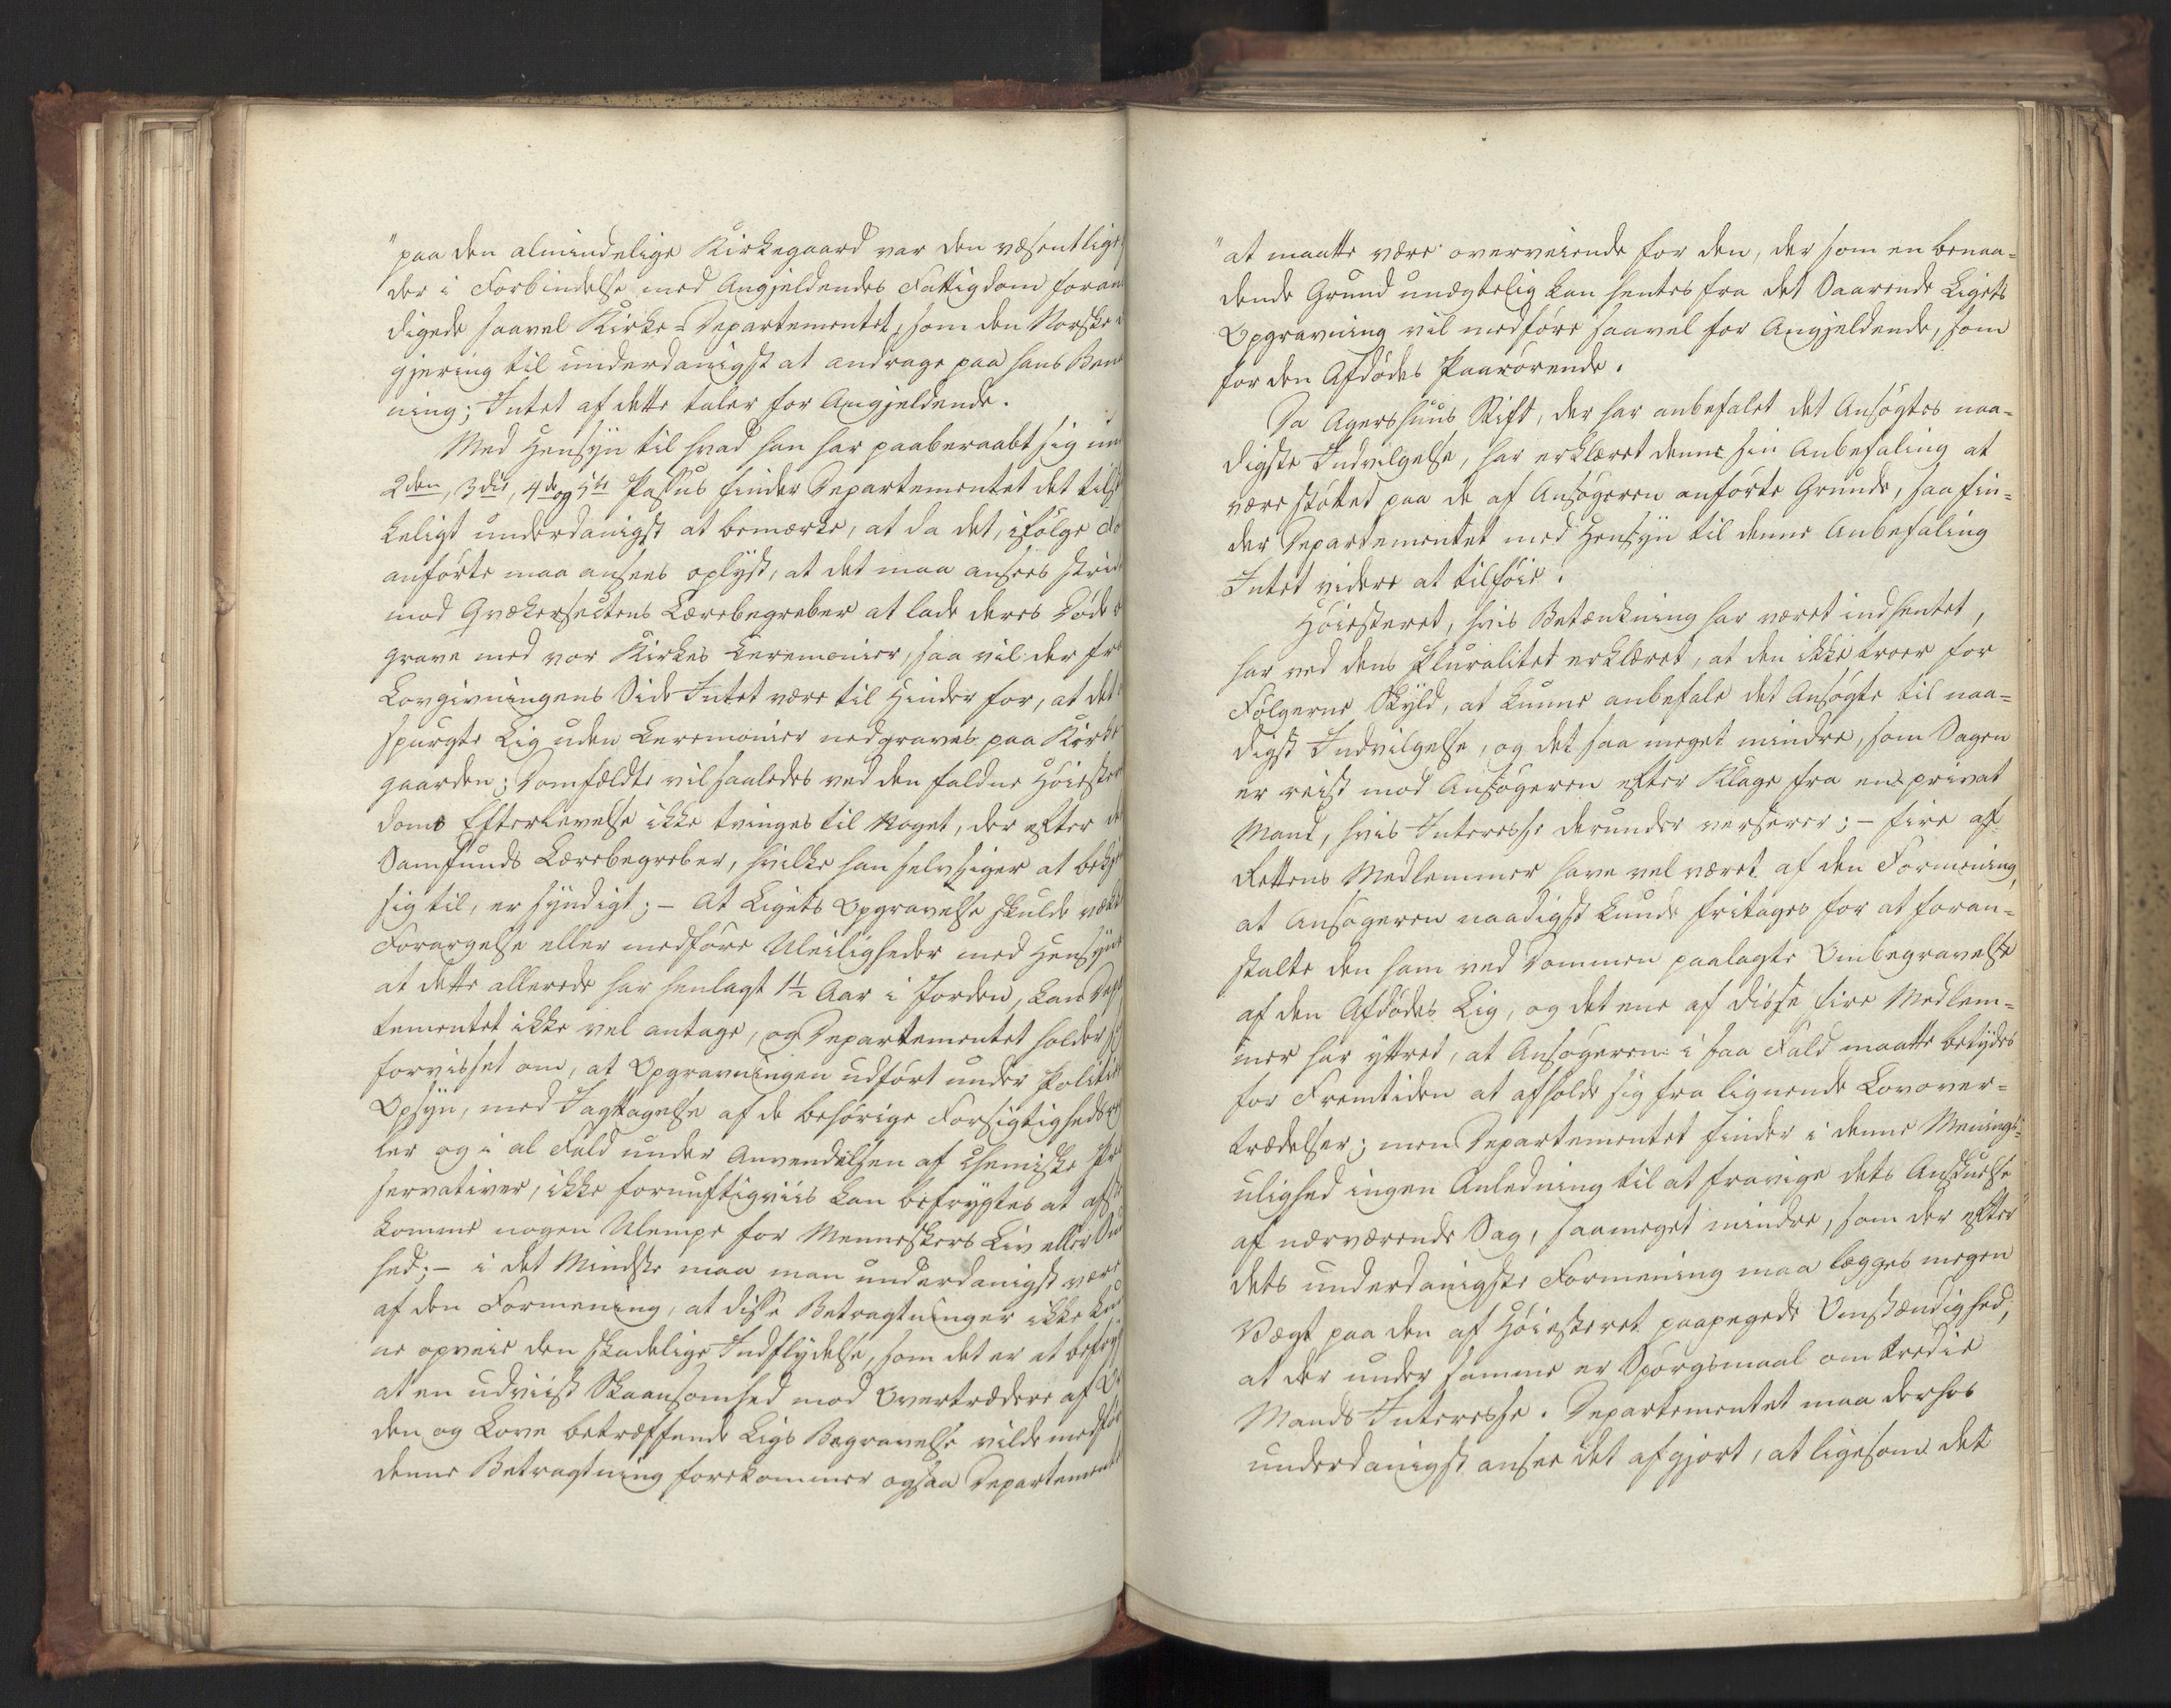 "paa den almindelige Kirkegaard var den væsentlige
der i Forbindelse med Angjeldendes Fattigdom foran
digede saavel Kirke-Departementet, som den Norske
gjering til underdanigst at andrage paa hans Benaa
ning; Intet af dette taler for Angjeldende.
Med Hensyn til hvad han har paaberaabt sig
2den, 3die, 4de og 5te Passus finder Departementet det til
keligt underdanigst at bemærke, at da det, ifølge
anførte maa ansees oplyst, at det maa ansees strid
mod Qvækersectens Lærebegreber at lade deres Døde
grave med vor Kirkes Ceremonier, saa vil der fra
Lovgivningens Side Intet være til Hinder for, at det
spurgte Lig uden Ceremonier nedgraves paa Kirke
gaarden; Domfældte vil saaledes ved den faldne Høieste
doms Efterlevelse ikke tvinges til Noget, der efter det
Samfunds Lærebegreber, hvilke han selv siger at bekj
sig til, er syndigt; – At Ligets Opgravelse skulde vække
Forargelse eller medføre Uleiligheder med Hensyn
at dette allerede har henlagt 1½ Aar i Jorden, kan Depar
tementet ikke vel antage, og Departementet holder sig
forvisset om, at Opgravningen udført under Politie
Opsyn, med Iagttagelse af de behørige Forsigtigheds
ler og i al Fald under Anvendelsen af chemiske Præ
servativer, ikke fornuftigviis kan befrygtes at af
komme nogen Ulempe for Menneskers Liv eller Sund
hed; – i det Mindste maa man underdanigst være
af den Formening, at disse Betragtninger ikke kun
ne opveie den skadelige Indflydelse, som det er at befryg
at en udviist Skaansomhed mod Overtrædere af Or
den og Love betræffende Ligs Begravelse vilde medføre
denne Betragtning forekommer ogsaa Departementet
"at maatte være overveiende for den, der som en benaa-
dende Grund unægtelig kan hentes fra det Saarende Ligets
Opgravning vil medføre saavel for Angjeldende, som
for den Afdødes Paarørende.
Da Agershuus Stift, der har anbefalet det Ansøgtes naa-
digste Indvilgelse, har erklæret denne sin Anbefaling at
være støttet paa de af Ansøgeren anførte Grunde, saa fin-
der Departementet med Hensyn til denne Anbefaling
Intet videre at tilføie.
Høiesteret, hvis Betænkning har været indhentet,
har ved dens Pluralitet erklæret, at den ikke troer for
Følgerne Skyld, at kunne anbefale det Ansøgte til naa-
digst Indvilgelse, og det saa meget mindre, som Sagen
er reist mod Ansøgeren efter Klage fra en privat
Mand, hvis Interesse derunder verserer; – fire af
Rettens Medlemmer have vel været af den Formening,
at Ansøgeren naadigst kunde fritages for at foran-
stalte den ham ved Dommen paalagte Ombegravelse
af den Afdødes Lig, og det ene af disse fire Medlem-
mer har yttret, at Ansøgeren i saa Fald maatte betydes
for Fremtiden at afholde sig fra lignende Lovover-
trædelser; men Departementet finder i denne Menings-
ulighed ingen Anledning til at fravige dets Anskuelse
af nærværende Sag, saameget mindre, som der efter
dets underdanigste Formening maa lægges megen
Vægt paa den af Høiesteret paapegede Omstændighed,
at der under samme er Spørgsmaal om tredie
Mands Interesse. Departementet maa derhos
underdanigst ansee det afgjort, at ligesom det